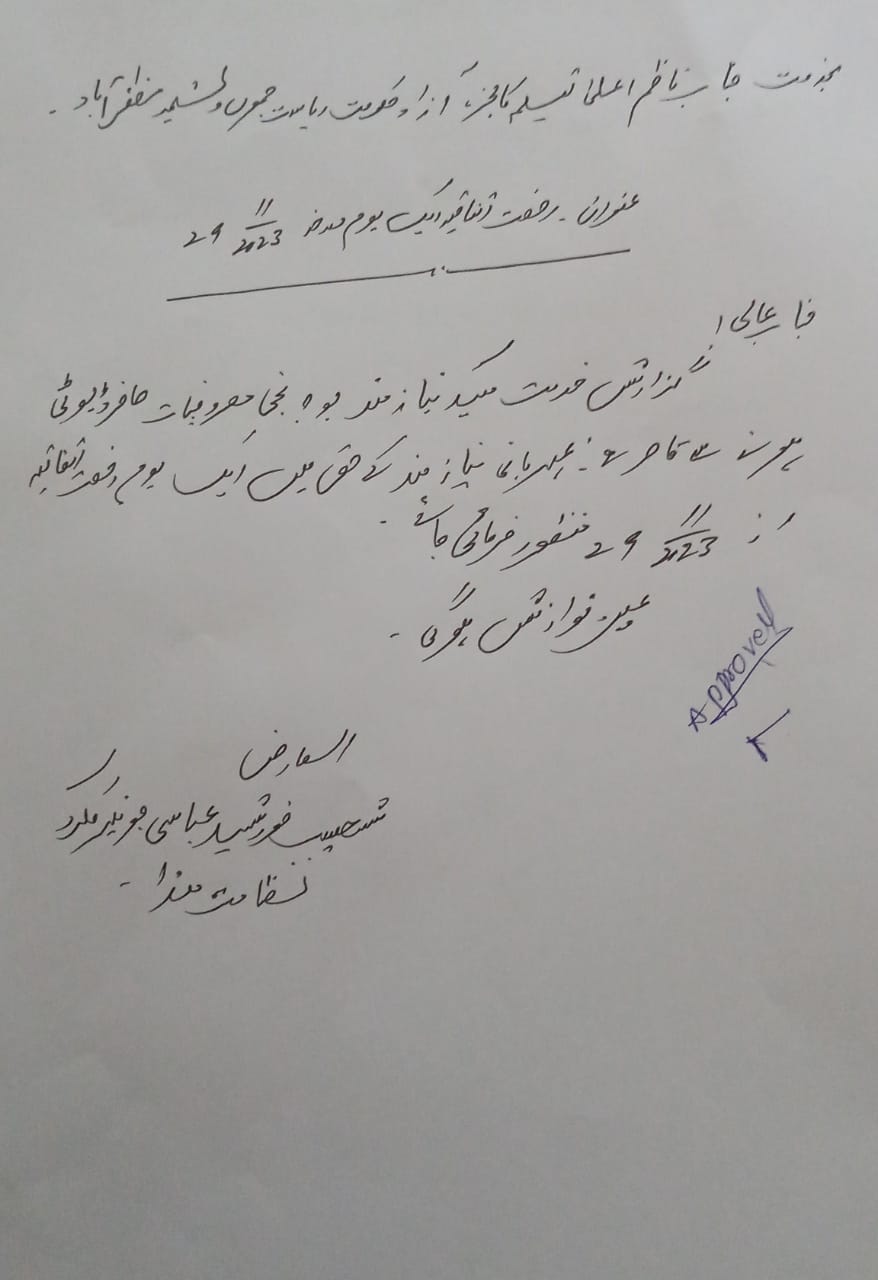 بخدمت جناب ناظم اعلیٰ تعلیم کالجز، آزاد حکومت ریاست جموں و کشمیر مظفرآباد۔
عنوان۔ رخصت اتفاقیہ ایک یوم مورخہ 29 11/2023
جناب عالی!
گزارش خدمت ہیکہ نیاز مند بوجہ نجی مصروفیات حاضر ڈیوٹی
ہونے سے قاصر ہے۔ بمہربانی نیاز مند کے حق میں ایک یوم رخصت اتفاقیہ
از 29 11/2023 منظور فرمائی جائے۔
عین نوازش ہوگی۔
Approved
العارض
خورشید عباسی جونیئر کلرک
نظامت ہذا۔